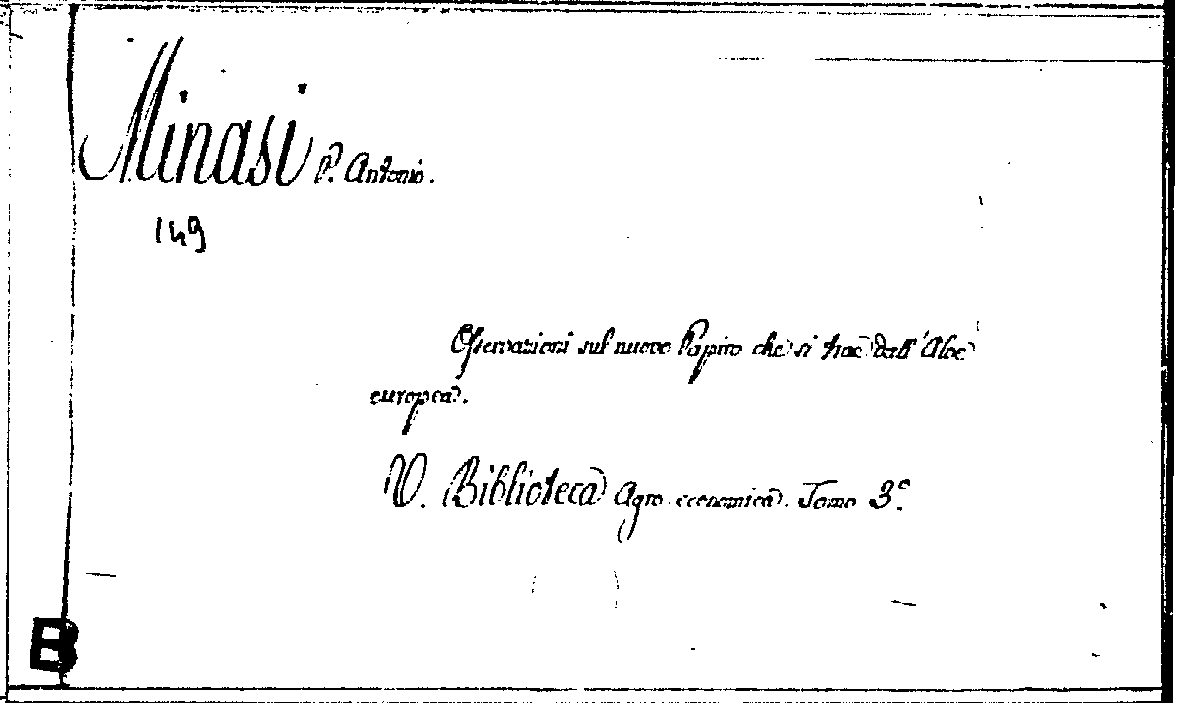 Minasi P. Antonio.
149
Osservazioni sul nuovo Papiro che si trae dall'Aloe
europea.
V. Biblioteca Agro economica. Tomo 3.º
B